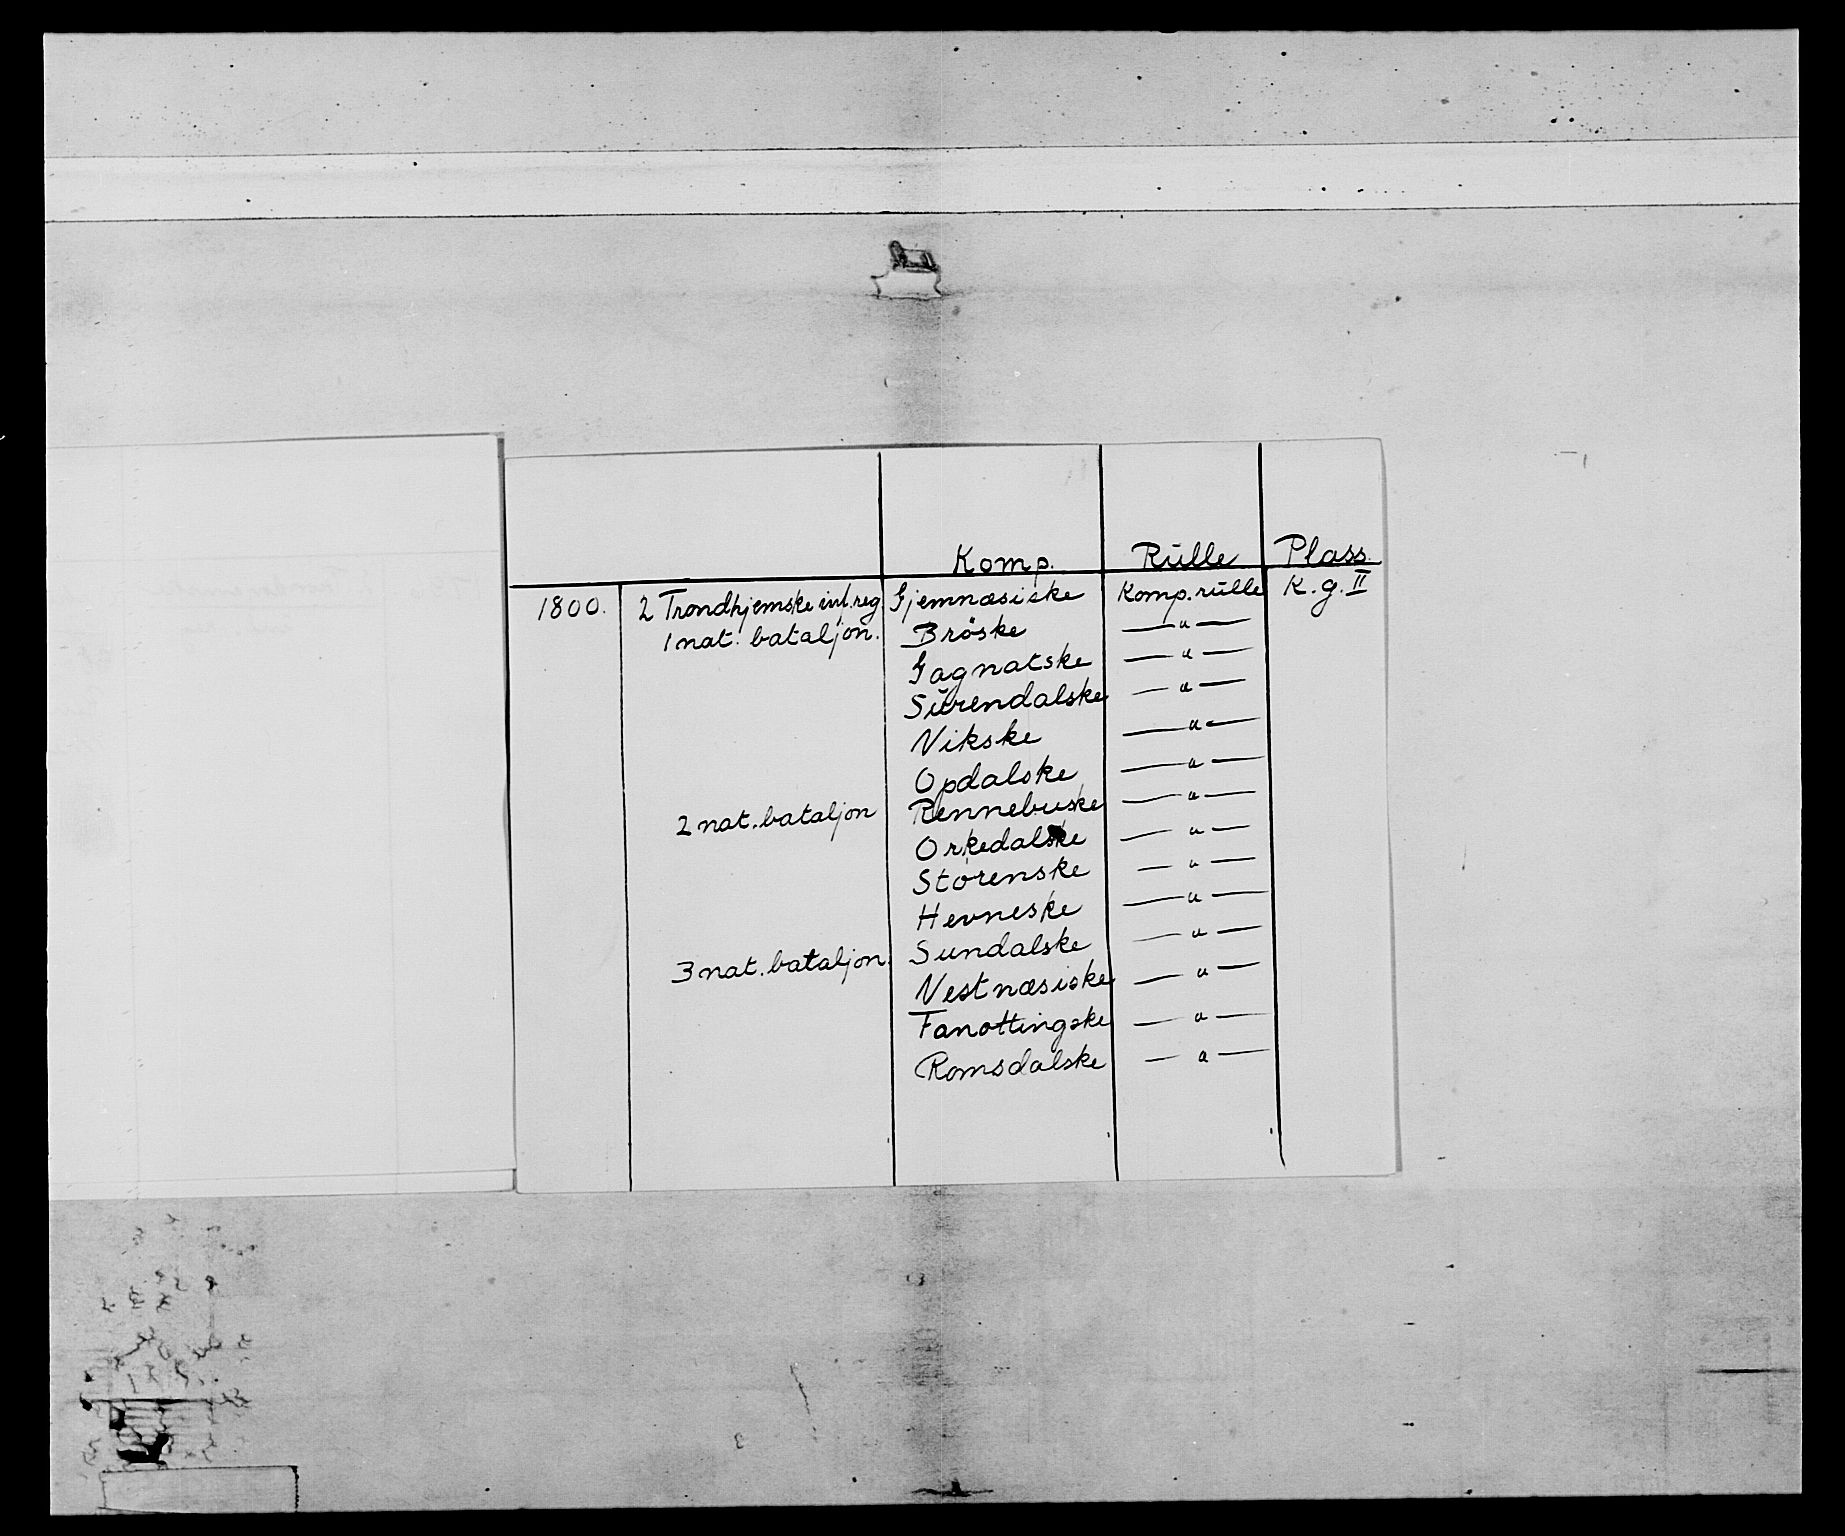 Komp. Rülle Plass.
1800. 2 Trondhjemske inf. reg. Gjemnæsiske Komp. rülle K. g. II
1 nat. bataljon. Bröske —〃—
Gagnatske —〃—
Sürendalske —〃—
Vikske —〃—
Opdalske —〃—
2 nat. bataljon Rennebuske —〃—
Orkedalske —〃—
Störenske —〃—
Hevneske —〃—
3 nat. bataljon. Sundalske —〃—
Vestnæsiske —〃—
Fanottingske —〃—
Romsdalske —〃—